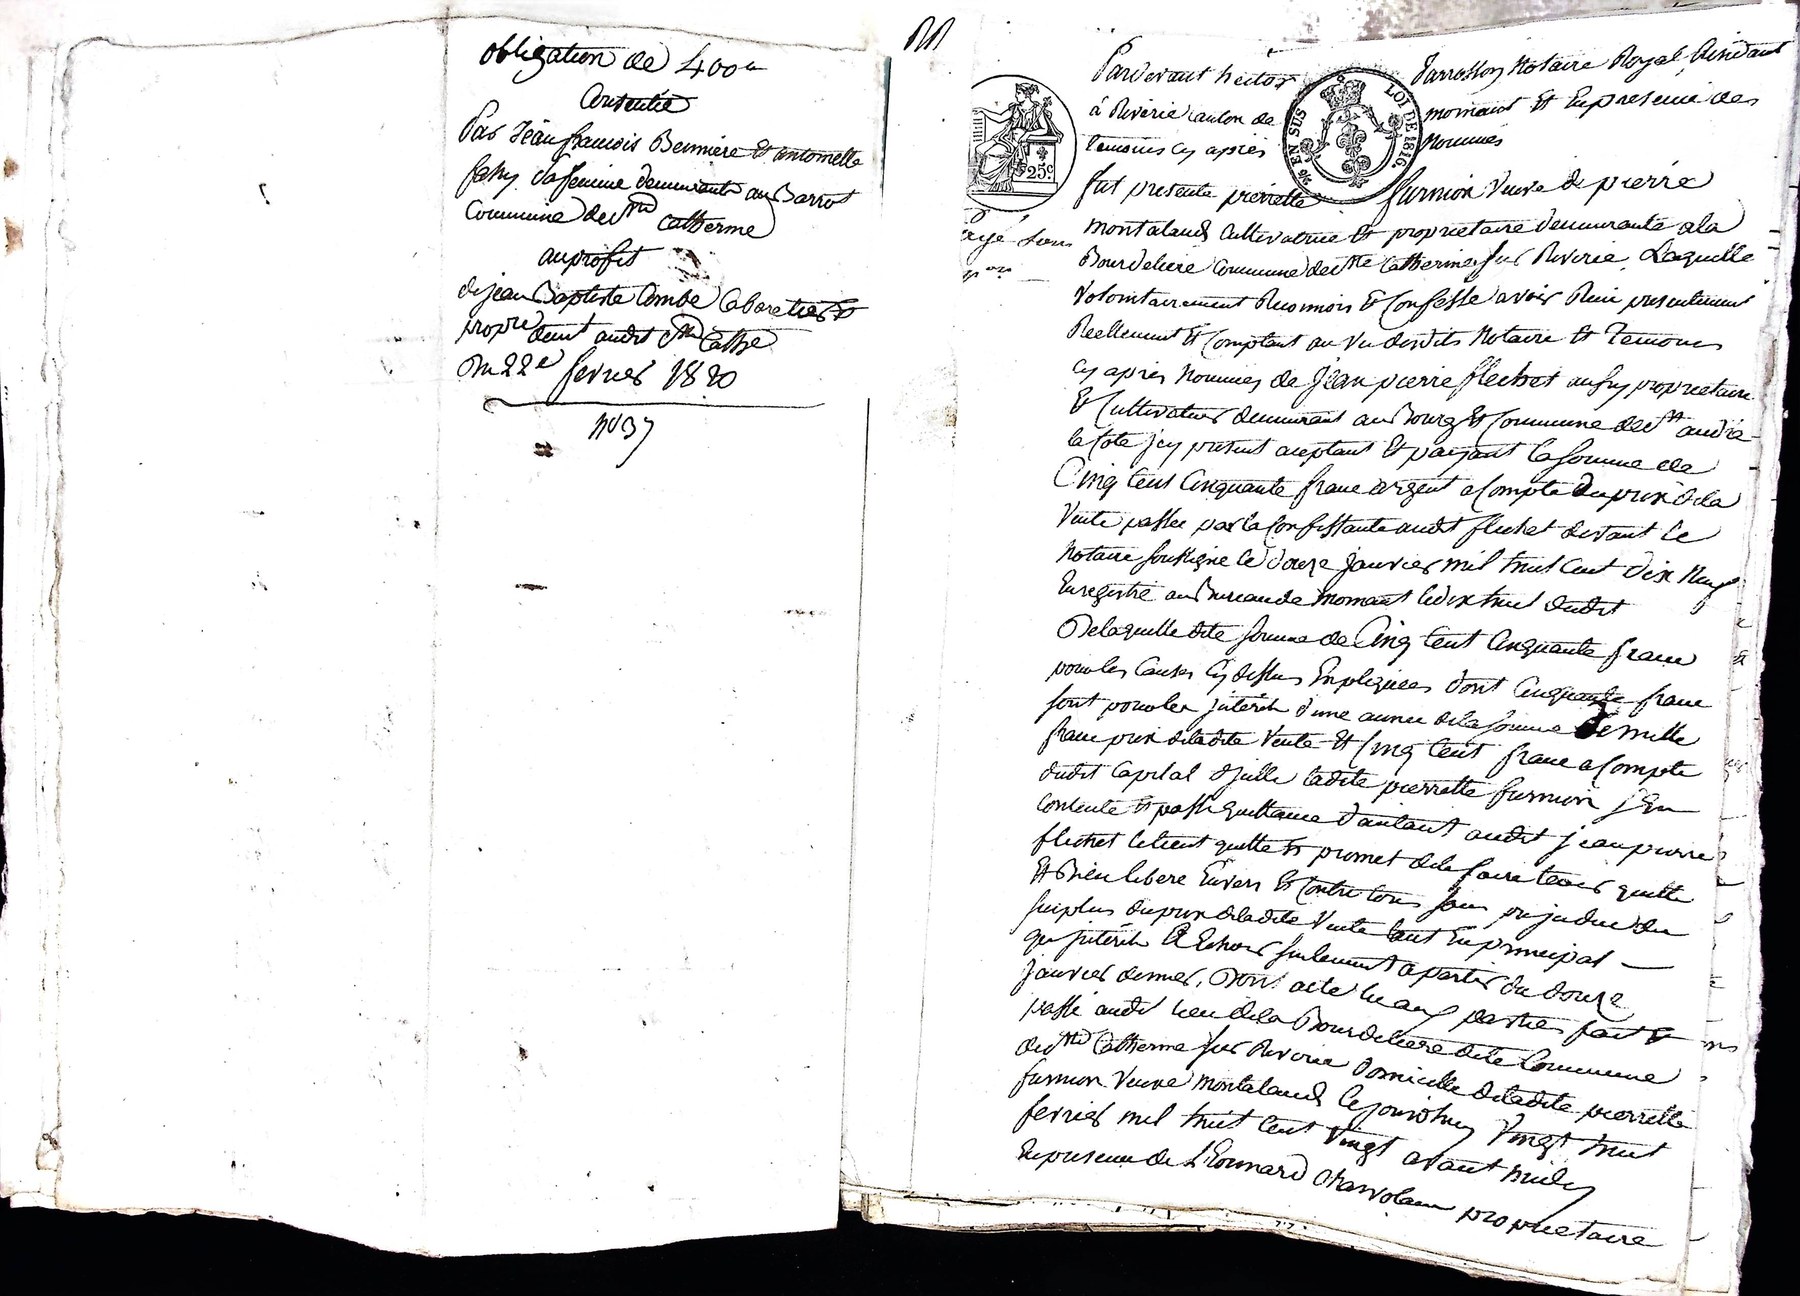 obligation de 400 fr
Consentie
Par Jean francois Bernniere et antoinette
fahy sa femme demeurants au Barrot
Commune de Ste Catherine
au profit
de jean Baptiste Combe Cabaretier et
propre demt audit Ste Cathe
Du 22e fevrier 1820
no 37
Pardevant hector Parrossoy Notaire Royal Residant
à Riverie canton de mornant Et En presence des
temoins cy après Nommés
EN SUS
LOI DE 1816.
25c.
fut presente pierrette furnion veuve de pierre
montaland Cultivatrice Et proprietaire demeurante a la
Bourdeliere Commune de Ste Catherine sur Riverie, Laquelle
Volontairement Reconnois Et Confesse avoir Recu presentement
Reellement Et Comptant au vu desdits Notaire Et Temoins
Cy après Nommes de Jean pierre flechet proprietaire
Et Cultivateur demeurant au Bourg Et Commune de St andré
la Cote jcy present aceptant Et payant la somme de
Cinq Cent Cinquante franc argent a Compte du prix de la
Vente passée par la Confessante audit flechet devant le
Notaire soussigné le douze janvier mil huit Cent dix Neuf
Enregistré au Bureau de mornant le dix huit dudit
De laquelle dite somme de Cinq Cent Cinquante franc
pour les Causes Cy dessus Expliquées dont Cinquante franc
sont pour les jnterêts d'une année de la somme de mille
franc prix de la dite Vente Et Cinq Cent franc a Compte
dudit Capital Ladite pierrette furnion s'En
Contente Et passe quittance d'autant audit jean pierre
flechet le tient quitte Et promet de le faire tenir quitte
Et Bien libere Envers Et Contre tous sans prejudice du
surplus du prix de ladite Vente tant En principal
qu jnterêts A Echoir seulement a partir du douze
janvier dernier, Dont acte lu aux parties fait Et
passé audit lieu de la Bourdeliere dite Commune
de Ste Catherine sur Riverie domicille de ladite pierrette
furnion Veuve montaland Cejourdhuy Vingt huit
fevrier mil huit Cent Vingt avant midy
En presence de LEonnard proprietaire